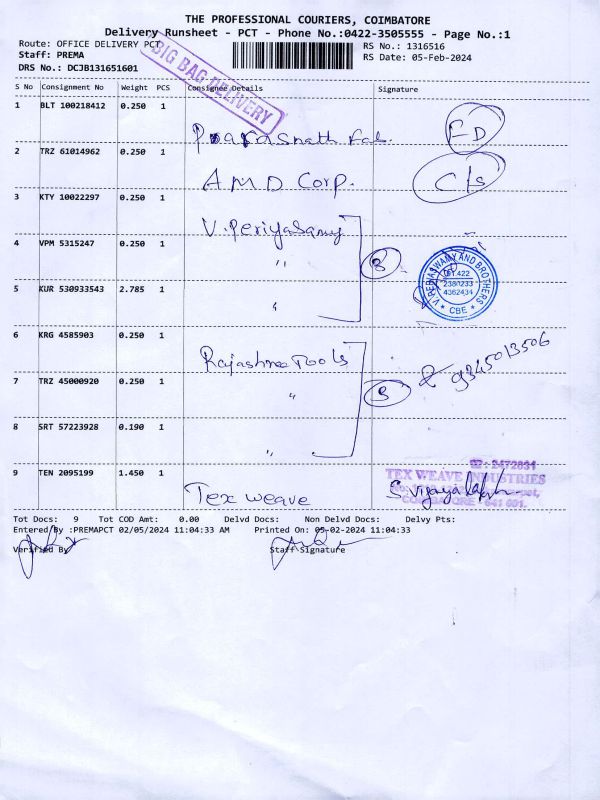 THE PROFESSIONAL COURIERS, COIMBATORE
Delivery Runsheet - PCT - Phone No.:0422-3505555 - Page No.:1
Route: OFFICE DELIVERY PCT
RS No.: 1316516
Staff: PREMA
RS Date: 05-Feb-2024
DRS No.: DCJB131651601
BIG BAG DELIVERY
S No Consignment No Weight PCS Consignee Details Signature
1 BLT 100218412 0.250 1
FD
2 TRZ 61014962 0.250 1
A M D Corp. C/s
3 KTY 10022297 0.250 1
V. Periyasamy
4 VPM 5315247 0.250 1 " 3
V. PERIASWAMY AND BROTHERS
2380233
4362434
★ CBE ★
5 KUR 530933543 2.785 1 "
6 KRG 4585903 0.250 1
Rajashree Tools 9345013506
7 TRZ 45000920 0.250 1 " 3
8 SRT 57223928 0.190 1 "
☎: 2472031
9 TEN 2095199 1.450 1
TEX WEAVE INDUSTRIES
Tex weave
COIMBATORE - 641 001.
Tot Docs: 9 Tot COD Amt: 0.00 Delvd Docs: Non Delvd Docs: Delvy Pts:
Entered By :PREMAPCT 02/05/2024 11:04:33 AM Printed On: 05-02-2024 11:04:33
Verified By Staff Signature